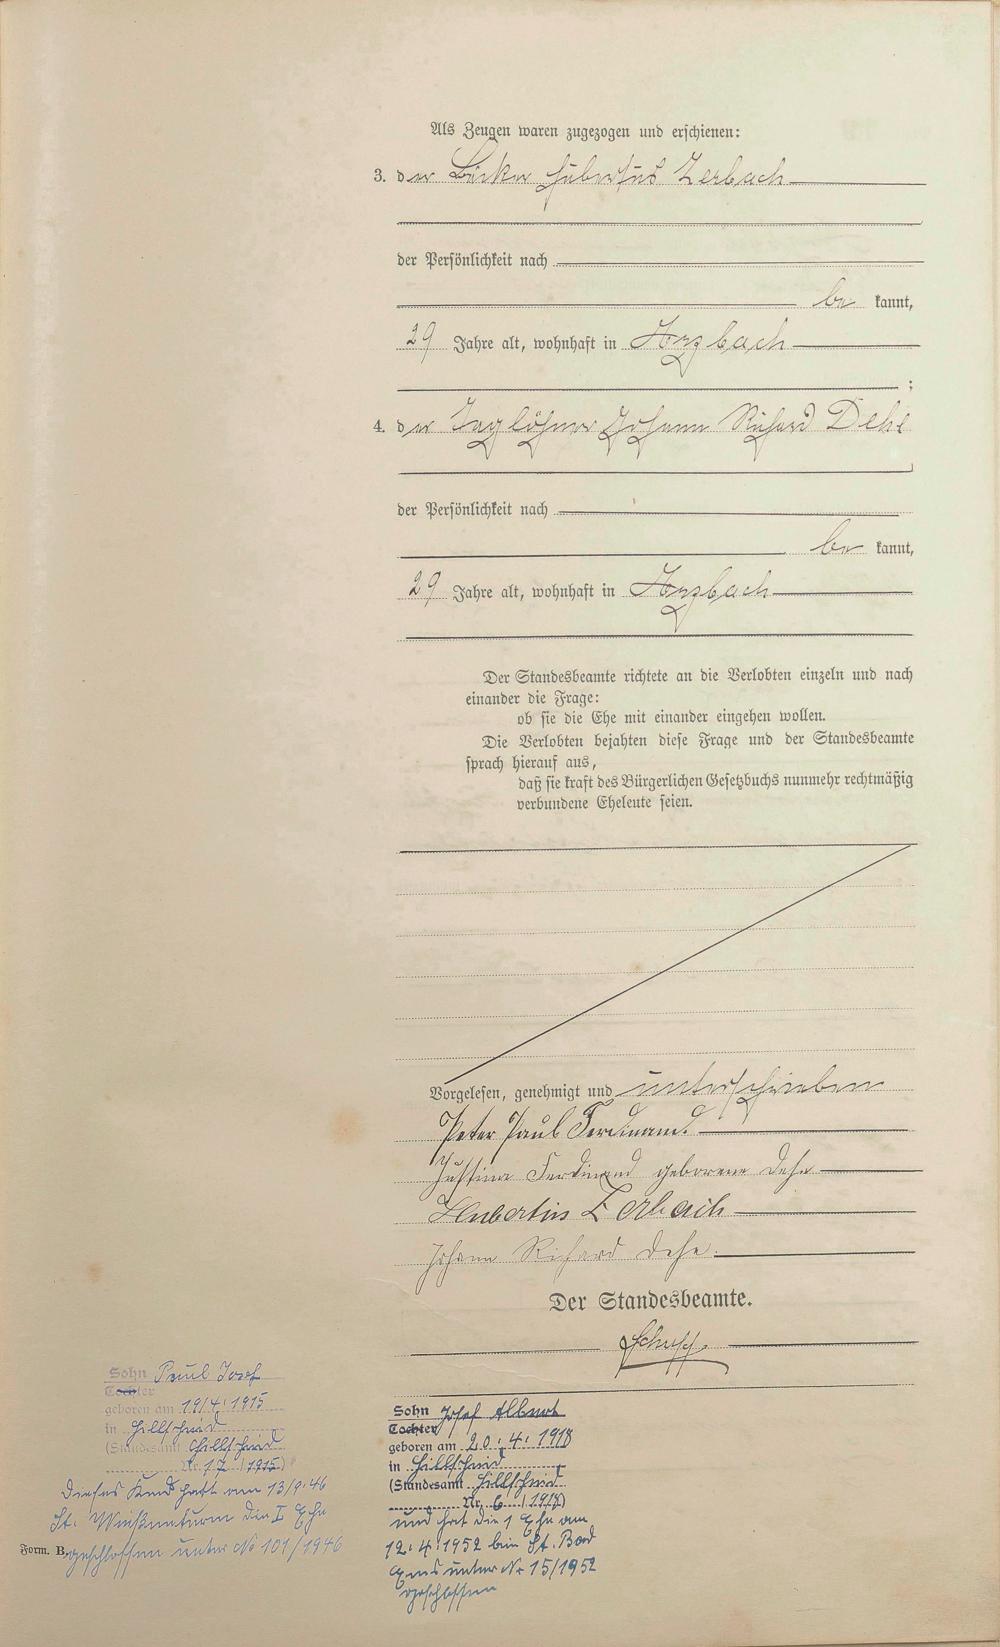 Als Zeugen waren zugezogen und erschienen:
3. der Bäcker Hubertus Zerbach
der Persönlichkeit nach
be kannt,
29 Jahre alt, wohnhaft in Arzbach
;
4. der Taglöhner Johann Richard Dehe
der Persönlichkeit nach
be kannt,
29 Jahre alt, wohnhaft in Arzbach
Der Standesbeamte richtete an die Verlobten einzeln und nach
einander die Frage:
ob sie die Ehe mit einander eingehen wollen.
Die Verlobten bejahten diese Frage und der Standesbeamte
sprach hierauf aus,
daß sie kraft des Bürgerlichen Gesetzbuchs nunmehr rechtmäßig
verbundene Eheleute seien.
Vorgelesen, genehmigt und unterschrieben
Peter Paul Ferdinand.
Justina Ferdinand geborene Dehe
Hubertus Zerbach
Johann Richard Dehe.
Der Standesbeamte.
Sohn Paul Josef
Tochter
geboren am 19/4.1915
in Hillscheid
(Standesamt Hillscheid
Nr. 17 / 1915)
Dieses Kind hat am 13/9.46
St. Weißenturm die I Ehe
geschlossen unter No 101/1946
Form. B.
Sohn Josef Albert
Tochter
geboren am 20.4.1918
in Hillscheid
(Standesamt Hillscheid
Nr. 6 / 1918)
und hat die 1 Ehe am
12.4.1952 beim St. Bad
Ems unter Nr 15/1952
geschlossen